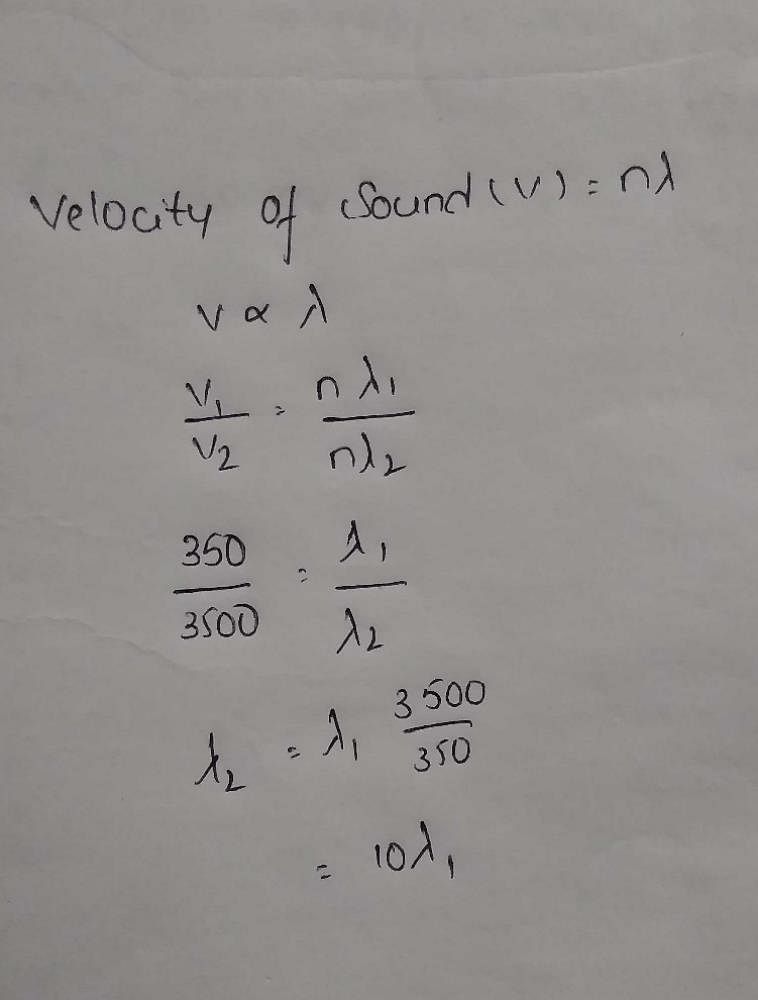 Velocity of Sound (v) = nλ
v ∝ λ
v₁/v₂ = nλ₁/nλ₂
350/3500 = λ₁/λ₂
λ₂ = λ₁ 3500/350
= 10λ₁